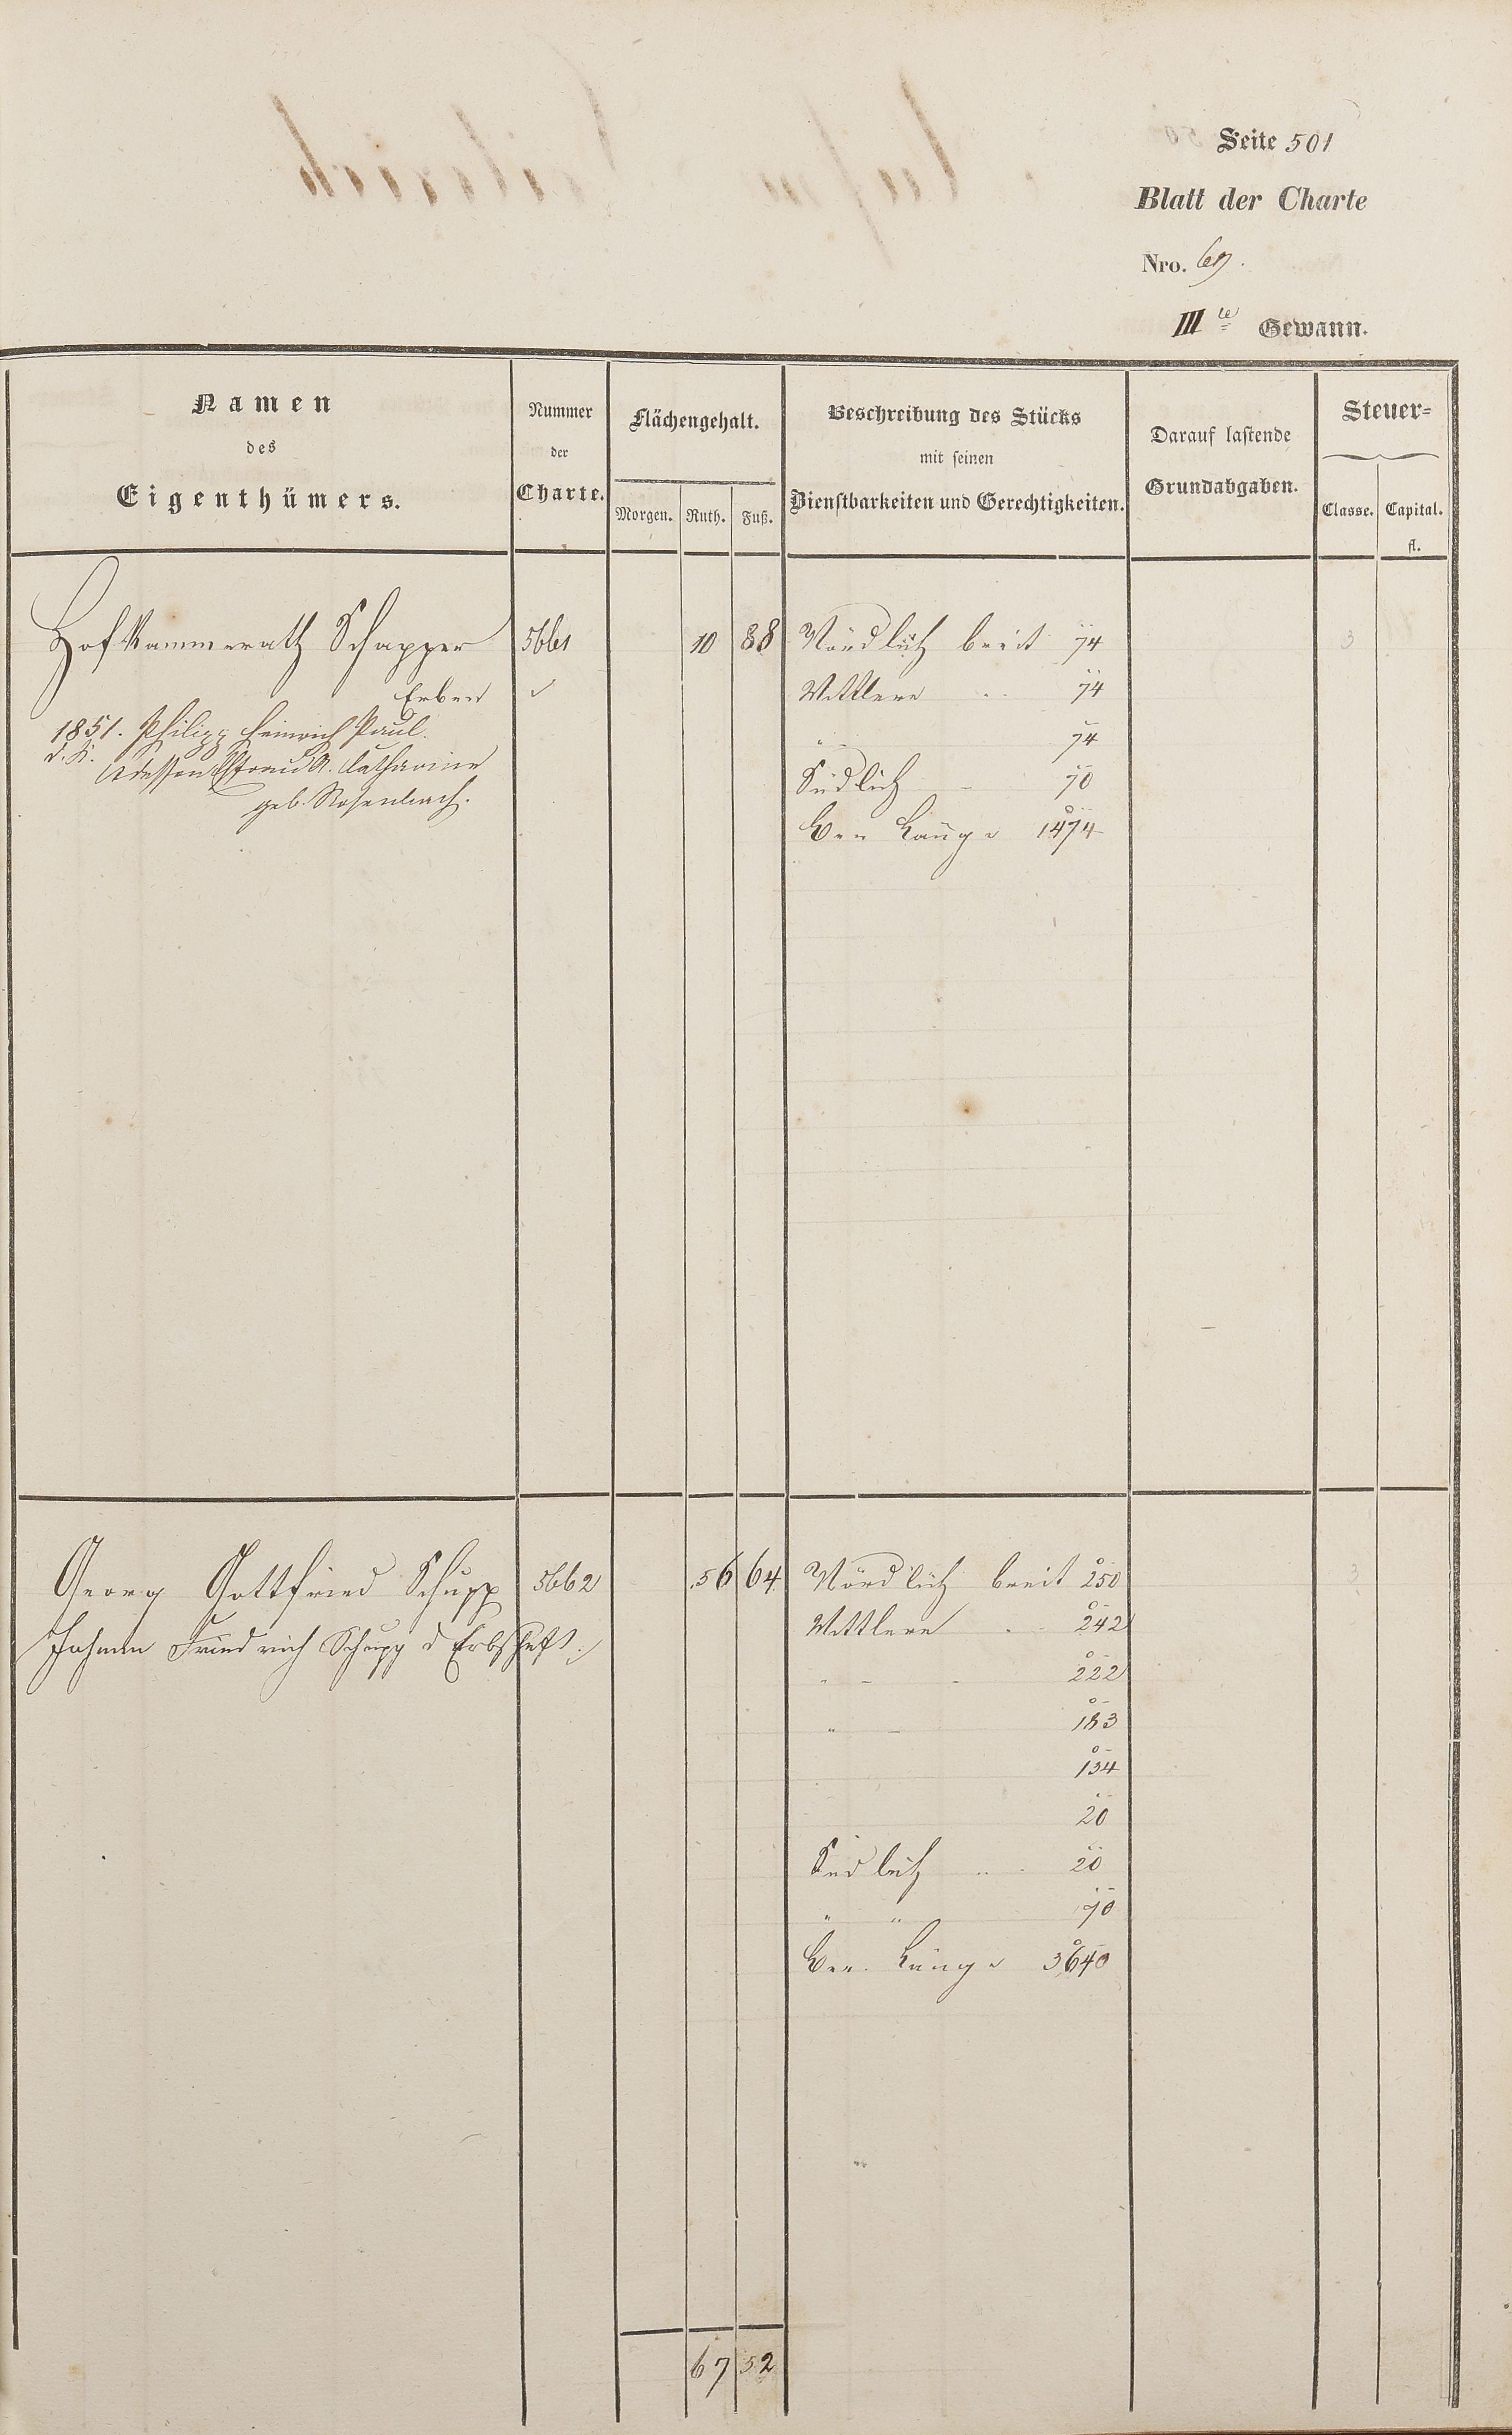 Seite 501
Blatt der Charte
Nro. 69.
III te Gewann.
Namen
des
Eigenthümers.
Nummer
der
Charte.
Flächengehalt.
Morgen. Ruth. Fuß.
Beschreibung des Stücks
mit seinen
Dienstbarkeiten und Gerechtigkeiten.
Darauf lastende
Grundabgaben.
Steuer=
Classe. Capital.
fl.
Hof Kammerath Schapper 5661 10 88 Nördlich breit 74 3
Erben Mittlere 74
1851. Philipp Heinrich Paul. " 74
d. K. dessen Ehefrau A. Catharine Südlich 70
geb. Rosenbach. Länge 1474
Georg Gottfried Schupp 5662 56 64 Nördlich breit 250 3
Johann Friedrich Schupp d Erbschaft. Mittlere 242
" 222
" 183
134
20
Südlich 20
" " 70
Länge 3640
67 52